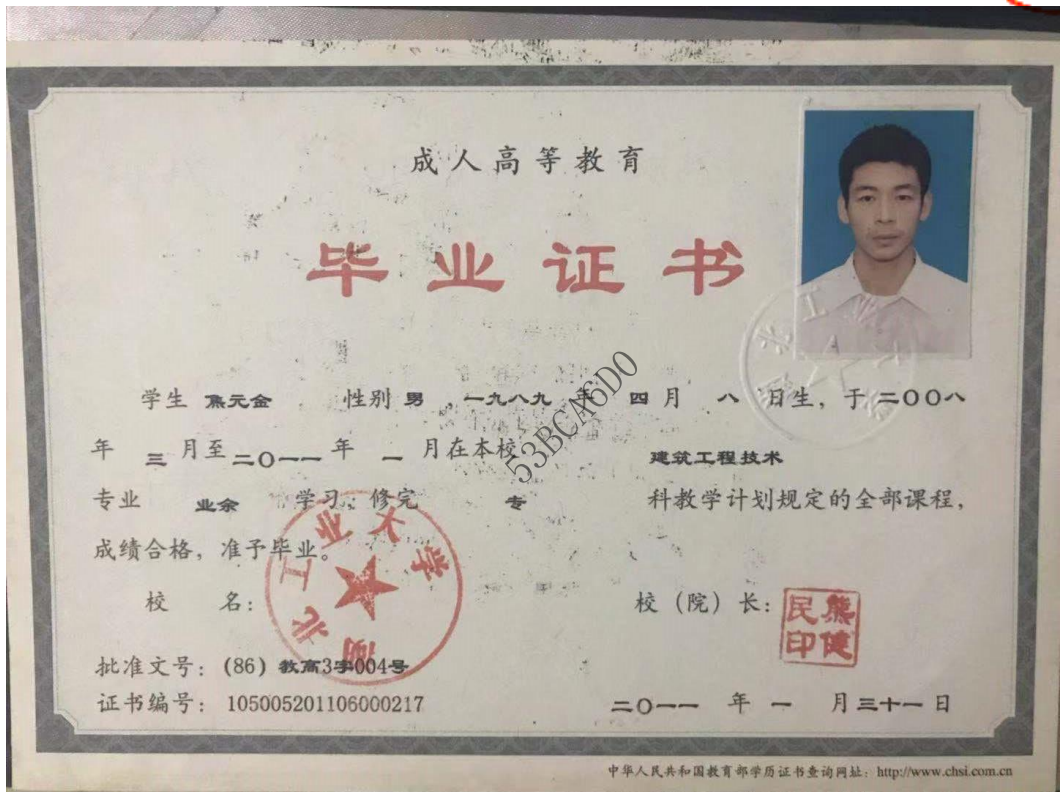 成人高等教育
毕业证书
学生 焦元金 性别 男 , 一九八九 年 四 月 八 日生, 于 二〇〇八
年 三 月至 二〇一一 年 一 月在本校 建筑工程技术
专业 业余 学习, 修完 专 科教学计划规定的全部课程,
成绩合格, 准予毕业。
53BCA6D0
湖北工业大学
校 名: 校 (院) 长: 熊健民印
批准文号: (86) 教高3字004号
证书编号: 105005201106000217 二〇一一 年 一 月 三十一 日
中华人民共和国教育部学历证书查询网址: http://www.chsi.com.cn